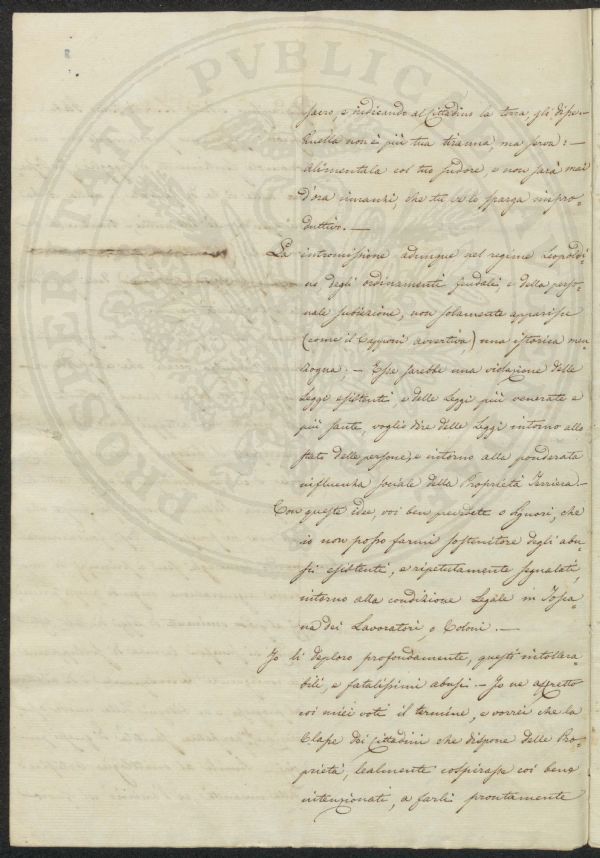 sacro, e indicando al Cittadino la terra, gli disse —
Quella non è più tua tiranna, ma serva: —
alimentala col tuo sudore, e non sarà mai
d'ora innanzi, che tu ve lo sparga impro-
duttivo. —
La intromissione adunque nel regime Leopoldi-
no degli ordinamenti feudali, e della perso-
nale subiezione, non solamente apparisce
(come il Capponi avvertiva) una istorica men-
zogna; — Essa sarebbe una violazione delle
Leggi esistenti, e delle Leggi più venerate e
più sante, voglio dire delle Leggi intorno allo
stato delle persone, e intorno alla ponderata
influenza sociale della Proprietà Terriera. —
Con queste idee, voi ben prevedete o Signori, che
io non posso farmi sostenitore degli abu-
si esistenti, e ripetutamente segnalati,
intorno alla condizione Legale in Tosca-
na dei Lavoratori, o Coloni. —
Io li deploro profondamente, questi intollera-
bili, e fatalissimi abusi — Io ne affretto
coi miei voti il termine, e vorrei che la
Classe dei Cittadini che dispone delle Pro-
prietà, lealmente cospirasse coi bene
intenzionati, a farli prontamente
PROSPERITATI PVBLICAE